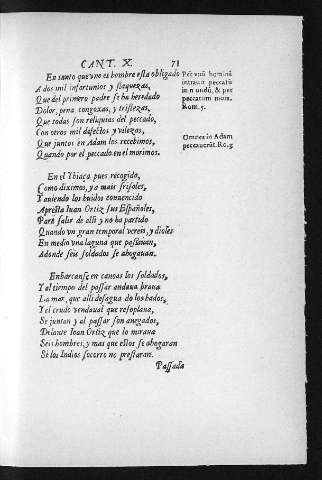 CANT. X. 71
En tanto que vno es hombre esta obligado
A dos mil infortunios y flaquezas,
Que del primero padre se ha heredado
Dolor, pena congoxas, y tristezas,
Que todas son reliquias del peccado,
Con otros mil defectos y vilezas,
Que juntos en Adam los recebimos,
Quando por el peccado en el morimos.
Per vnū hominē
intrauit peccatū
in mundū, & per
peccatum mors.
Rom. 5.
Omnes in Adam
peccauerūt. Ro. 5
En el Ybiaça pues recogido,
Como diximos, ya mais frisoles,
Y auiendo los huidos conuencido
Apresta Iuan Ortiz sus Españoles,
Para salir de alli y no ha partido
Quando vn gran temporal vereis, y dioles
En medio vna laguna que passauan,
Adonde seis soldados se ahogauan.
Enbarcanse en canoas los soldados,
Y al tiempo del passar andaua braua
La mar, que alli desagua do los hados,
Y el crudo vendaual que resoplaua,
Se juntan y al passar son anegados,
Delante Ioan Ortiz que lo miraua
Seis hombres, y mas que ellos se ahogaran
Si los Indios socorro no prestaran.
Passada